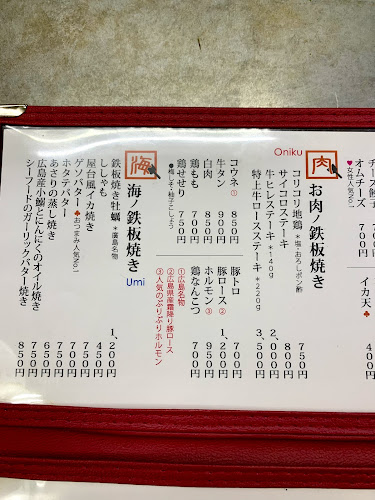 オムチーズ 700円
♥女性人気No.1
イカ天
肉 Oniku お肉ノ鉄板焼き
コリコリ地鶏 *塩・おろしポン酢 750円
サイコロステーキ 800円
牛ヒレステーキ *140g 2,000円
特上牛ロースステーキ *220g 3,500円
コウネ① 850円
牛タン 900円
白肉 500円
鶏もも 700円
鶏せせり 750円
●梅しそ・柚子こしょう
豚トロ 700円
豚ロース② 1,200円
ホルモン③ 950円
鶏なんこつ 750円
①広島名物
②広島県産霜降り豚ロース
③人気のぷりぷりホルモン
海 海ノ鉄板焼き Umi
鉄板焼き牡蠣 *廣島名物 1,200円
ししゃも
屋台風イカ焼き
ゲソバター ♣おつまみ人気No.1
ホタテバター
あさりの蒸し焼き
広島産小鰯とにんにくのオイル焼き
シーフードのガーリックバター焼き 850円